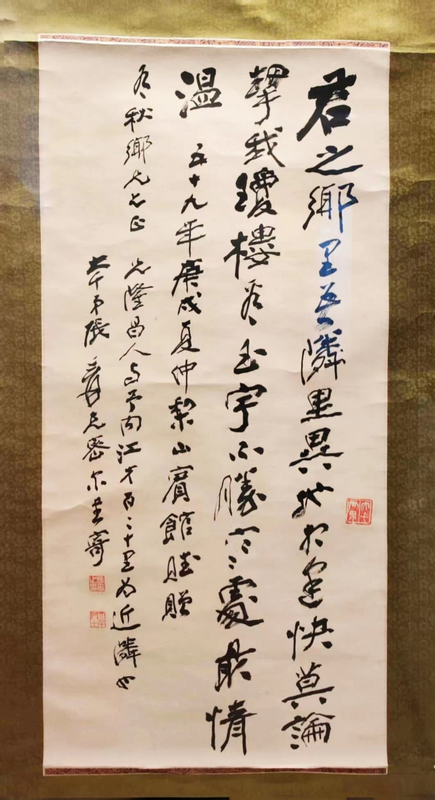 君之鄉里吾隣里異地相逢快莫論
挈我瓊樓看玉宇不勝寒處最情
溫 五十九年庚戌夏仲梨山賓館賦贈
秋鄉兄正 兄隆昌人与予内江才百二十里为近隣也
大千弟張爰